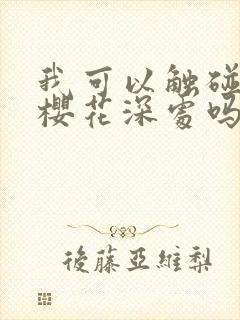 我可以触碰
樱花深处吗
後藤亞維梨